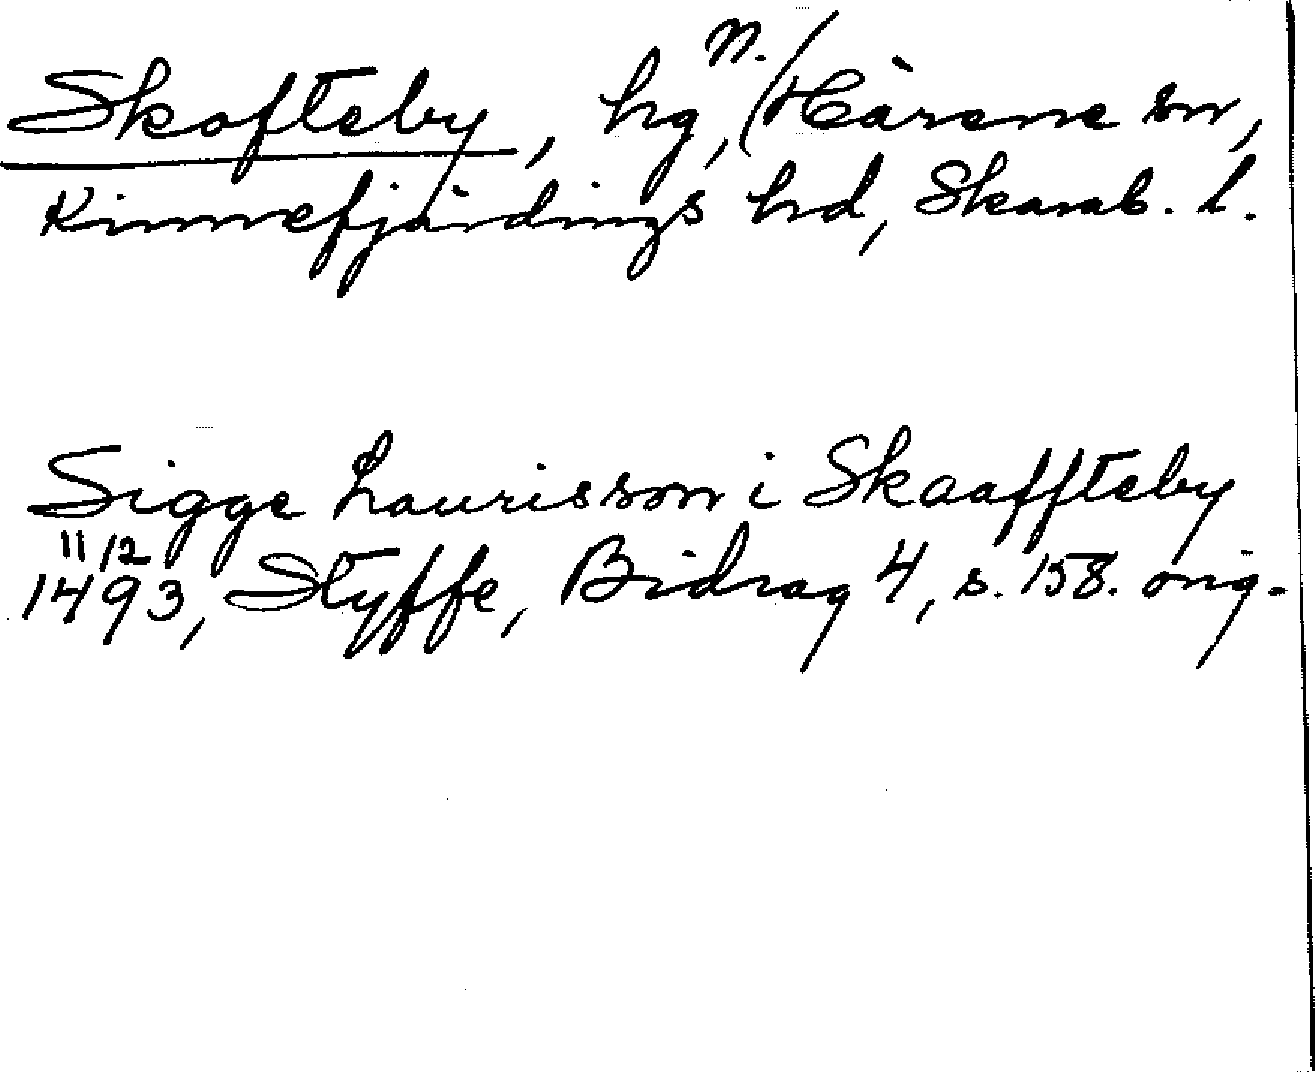 Skofteby, hg, N. Härene sn,
Kinnefjärdings hd, Skarab. l.
Sigge Laurisson i Skaaffteby
11/12
1493, Styffe, Bidrag 4, s. 158. orig.